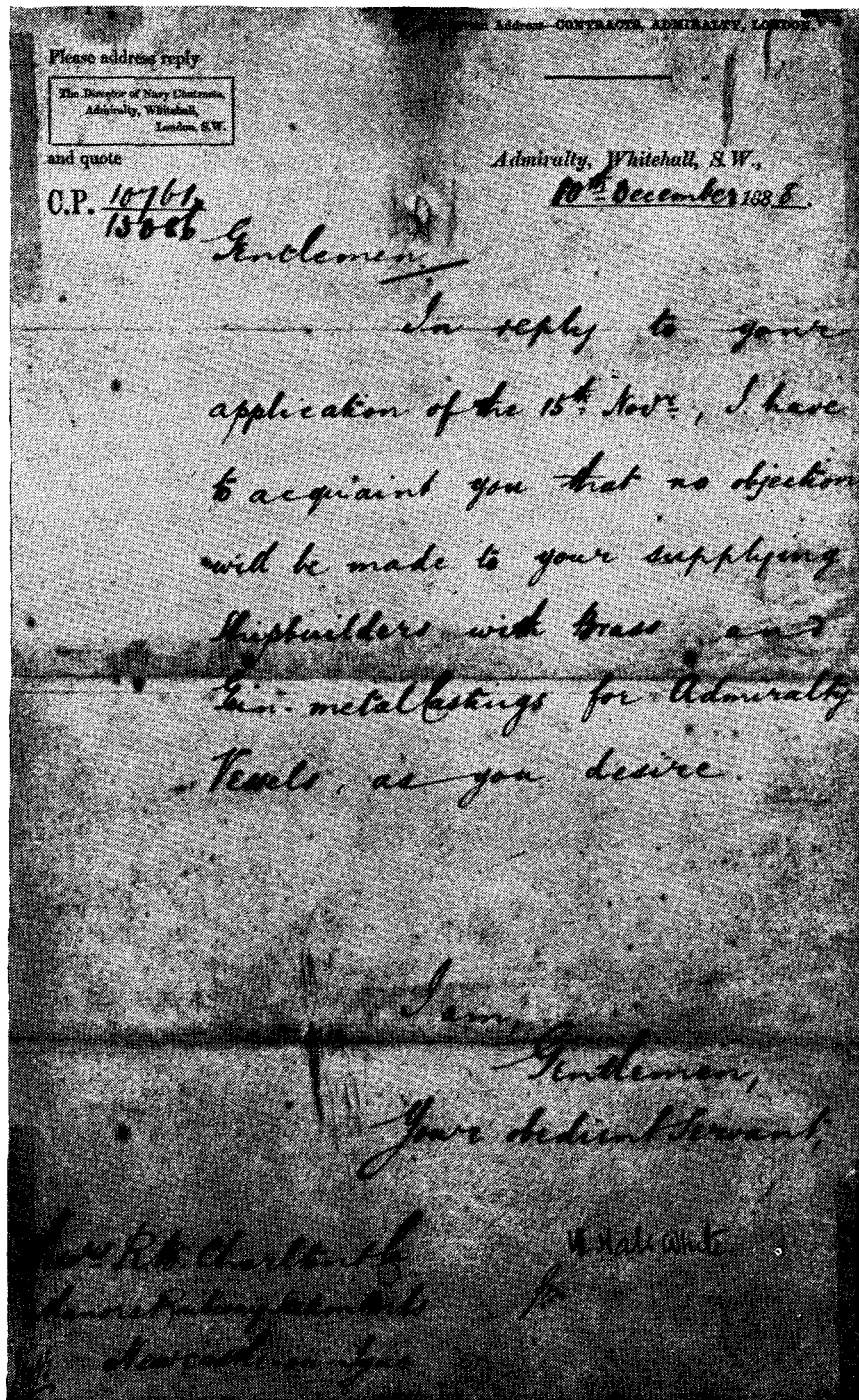 Address—CONTRACTS, ADMIRALTY, LONDON.
Please address reply
The Director of Navy Contracts,
Admiralty, Whitehall,
London, S.W.
and quote
Admiralty, Whitehall, S.W.,
10th December 1888.
C.P. 10761
Gentlemen,
In reply to your
application of the 15th Novr., I have
to acquaint you that no objection
will be made to your supplying
Shipbuilders with Brass and
Gun-metal Castings for Admiralty
Vessels, as you desire.
I am,
Gentlemen,
Your obedient Servant,
W. Hale White
R. W. Charlton
Newcastle on Tyne